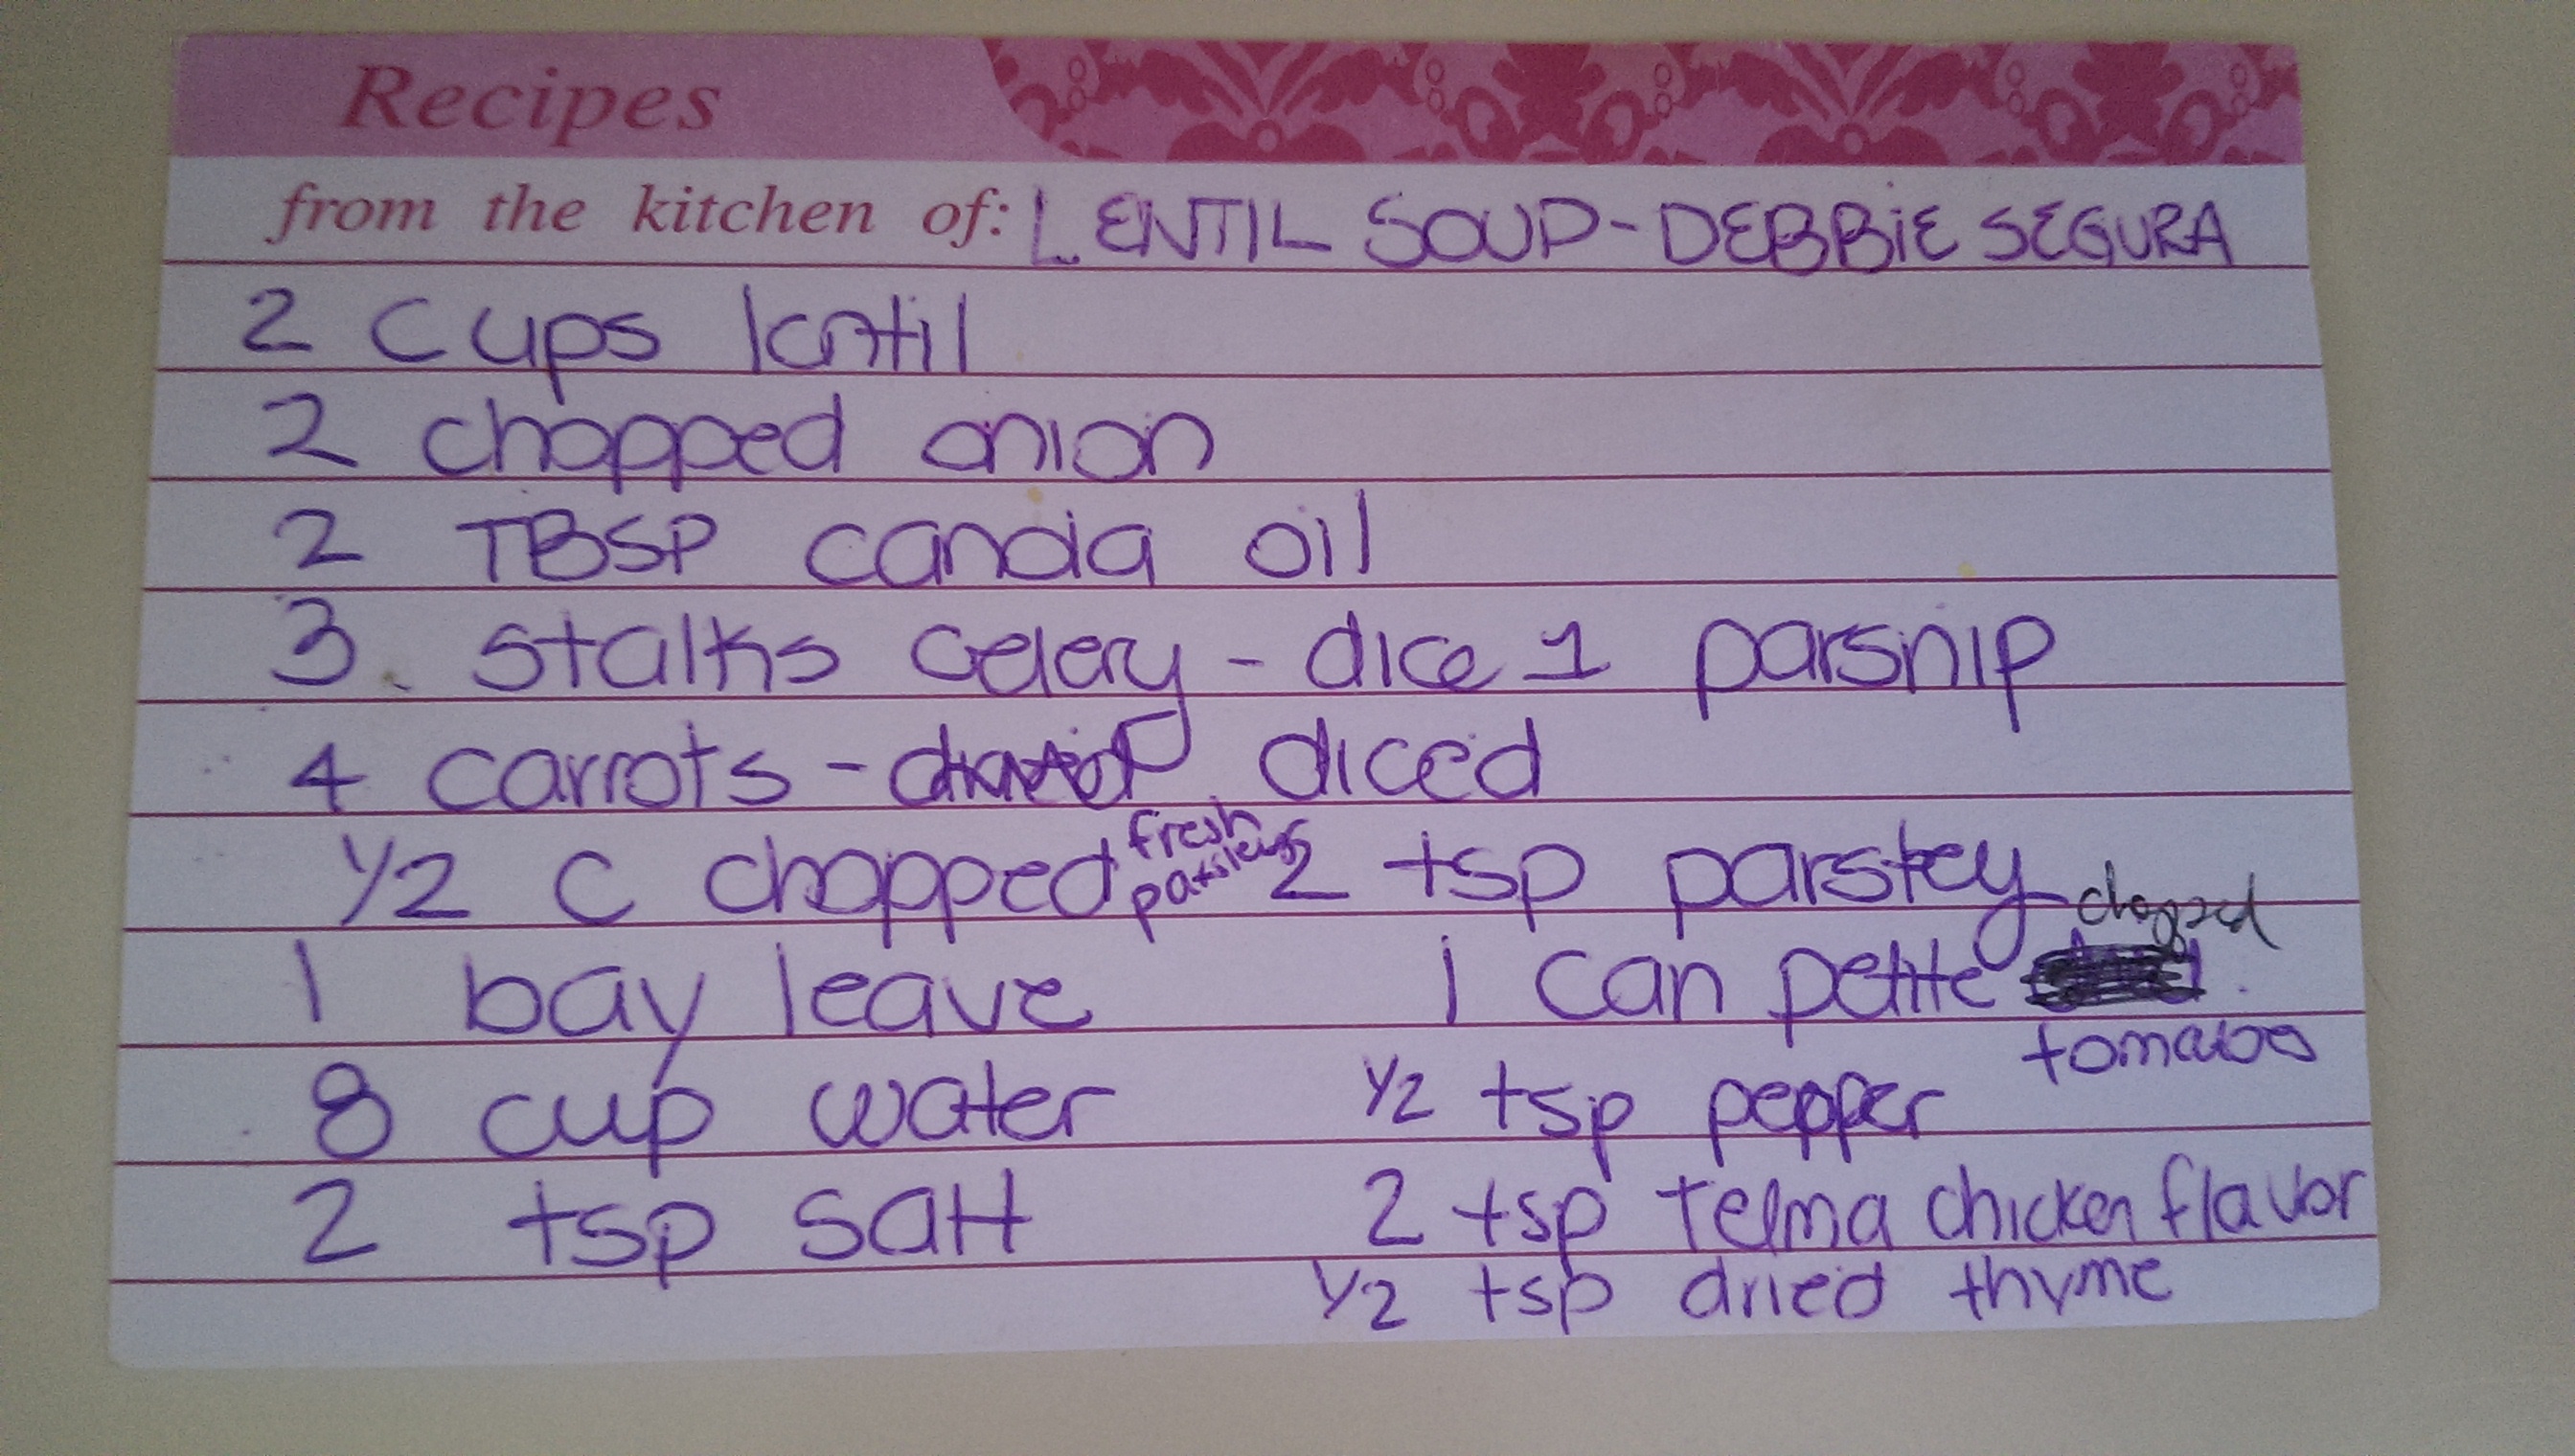 Recipes
from the kitchen of: LENTIL SOUP - DEBBIE SEGURA
2 cups lentil
2 chopped onion
2 TBSP canola oil
3 stalks celery - dice 1 parsnip
4 carrots - diced
1/2 C chopped fresh parsley 2 tsp parsley
1 bay leave 1 can petite chopped
tomatoes
8 cup water 1/2 tsp pepper
2 tsp salt 2 tsp Telma chicken flavor
1/2 tsp dried thyme